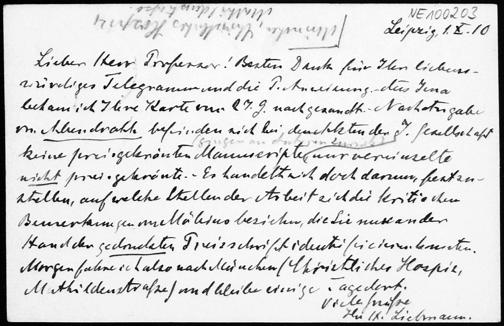 NE100203
Leipzig, 1.X.10
Lieber Herr Professor! Besten Dank für Ihr liebens-
würdiges Telegramm und die P. Anweisung. Aus Jena
bekam ich Ihre Karte vom 27.9. nachgesandt. Nach Angabe
von Abendroth befinden sich bei den Akten der J. Gesellschaft
keine preisgekrönten Manuscripte, nur vereinzelte
nicht preisgekrönte. - Es handelt sich doch darum, festzu-
stellen, auf welche Stellen der Arbeit sich die kritischen
Bemerkungen von Möbius beziehen, die Sie nur an der
Hand der gedruckten Preisschrift identificieren konnten.
Morgen fahre ich also nach München (Christliches Hospiz,
Mathildenstrasse) und bleibe einige Tage dort.
Viele Grüße
Ihr H. Liebmann.